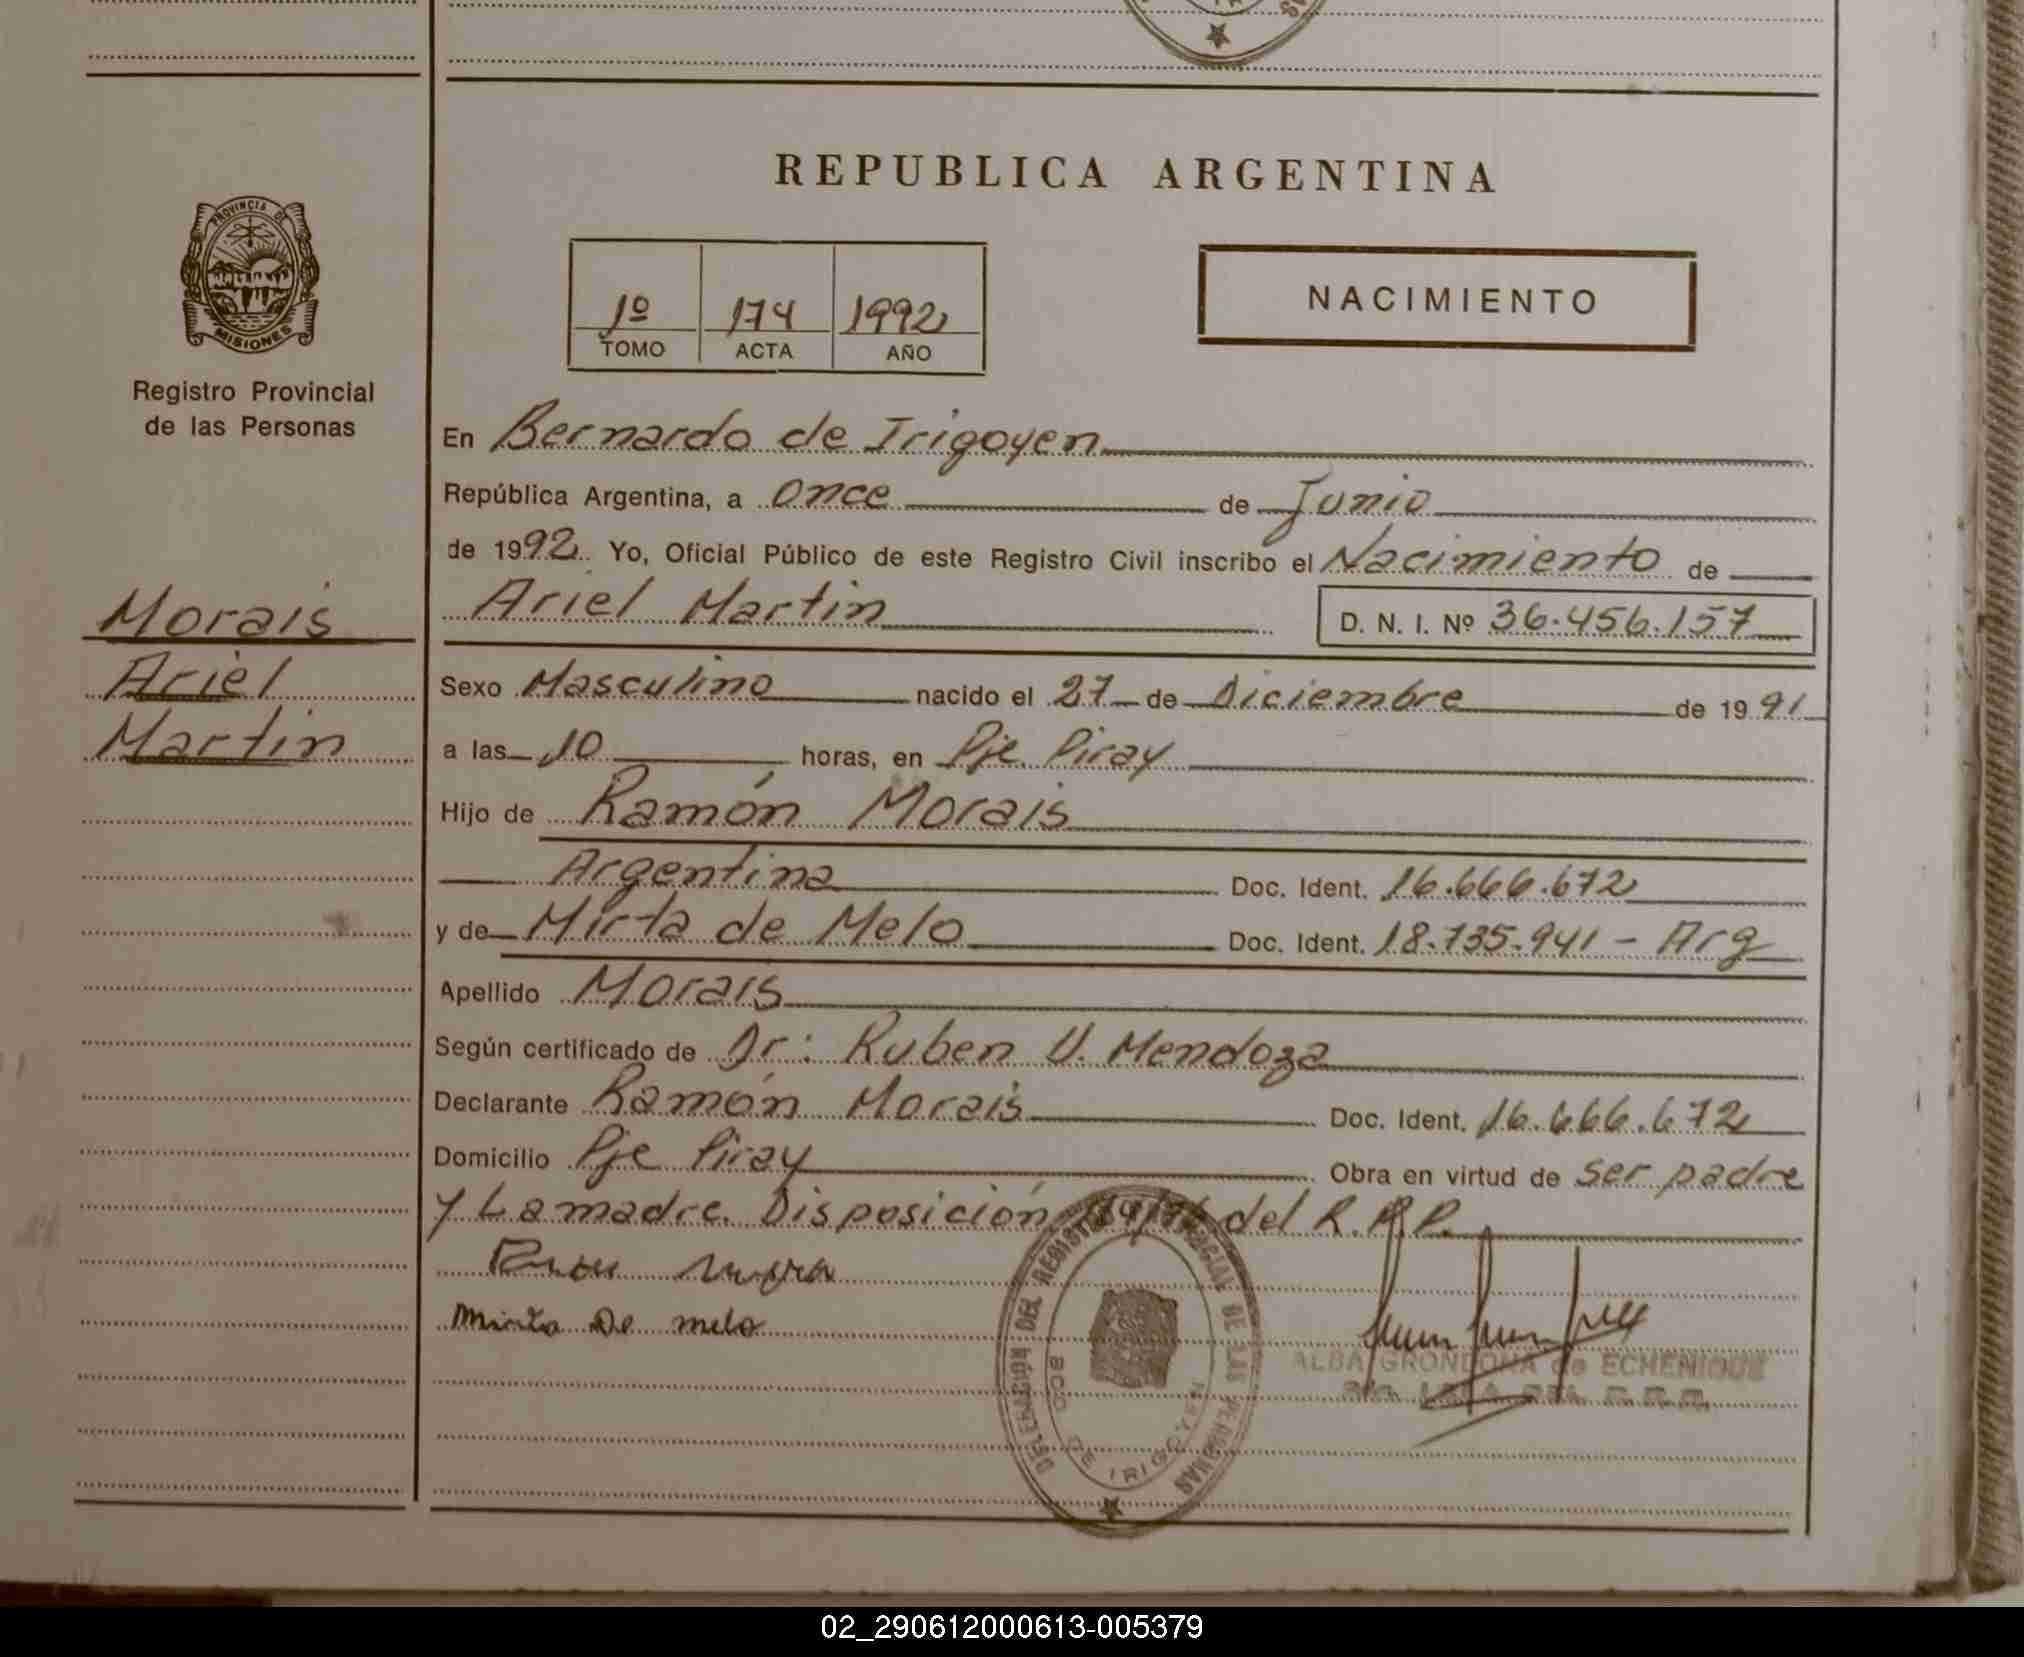 REPUBLICA ARGENTINA
PROVINCIA DE
MISIONES
Registro Provincial
de las Personas
1º 174 1992
TOMO ACTA AÑO
NACIMIENTO
En Bernardo de Irigoyen
República Argentina, a Once de Junio
de 1992. Yo, Oficial Público de este Registro Civil inscribo el Nacimiento de
Ariel Martin D. N. I. Nº 36.456.157
Morais
Ariel
Martin
Sexo Masculino nacido el 27 de Diciembre de 1991
a las 10 horas, en Pje Piray
Hijo de Ramón Morais
Argentina Doc. Ident. 16.666.672
y de Mirta de Melo Doc. Ident. 18.735.941 - Arg
Apellido Morais
Según certificado de Dr: Ruben V. Mendoza
Declarante Ramón Morais Doc. Ident. 16.666.672
Domicilio Pje Piray Obra en virtud de ser padre
y La madre. Disposición del R.P.P.
Mirta De melo
DEL REGISTRO PROVINCIAL DE LAS PERSONAS
BDO DE IRIGOYEN
ALBA GRONDONA de ECHENIQUE
02_290612000613-005379